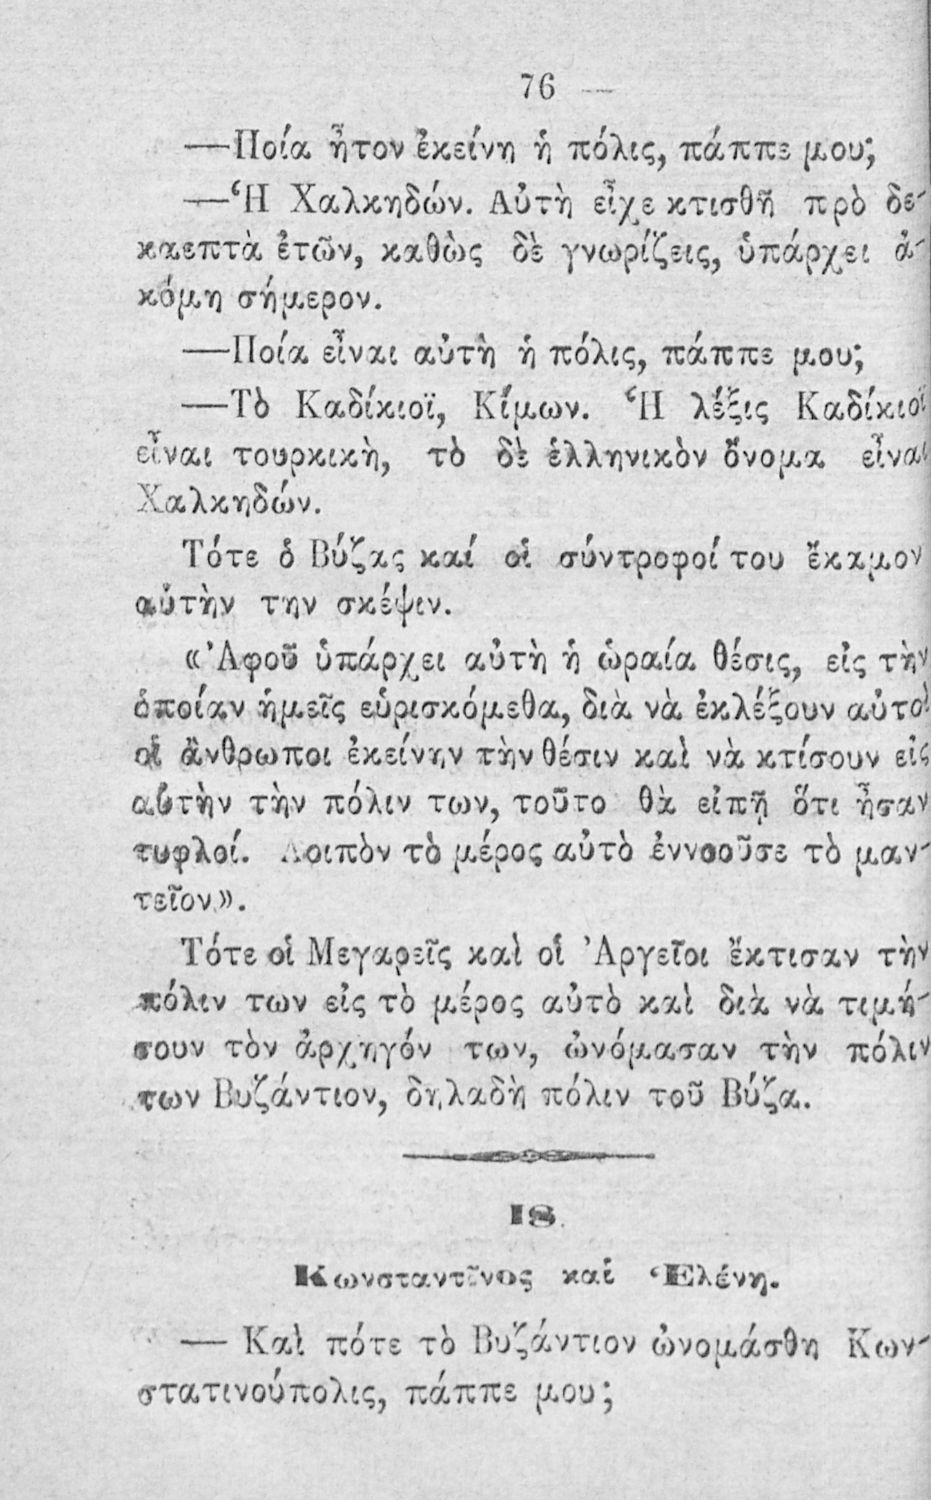 76 —
—Ποία ἦτον ἐκείνη ἡ πόλις, πάππε μου;
—Ἡ Χαλκηδών. Αὐτὴ εἶχε κτισθῆ πρὸ δε-
καεπτὰ ἐτῶν, καθὼς δὲ γνωρίζεις, ὑπάρχει ἀ-
κόμη σήμερον.
—Ποία εἶναι αὐτὴ ἡ πόλις, πάππε μου;
—Τὸ Καδίκιοϊ, Κίμων. Ἡ λέξις Καδίκιοϊ
εἶναι τουρκικὴ, τὸ δὲ ἑλληνικὸν ὄνομα εἶναι
Χαλκηδών.
Τότε ὁ Βύζας καί οἱ σύντροφοί του ἔκαμον
αὐτὴν την σκέψιν.
«Ἀφοῦ ὑπάρχει αὐτὴ ἡ ὡραία θέσις, εἰς τὴν
ὁποίαν ἡμεῖς εὑρισκόμεθα, διὰ νὰ ἐκλέξουν αὐτοὶ
οἱ ἄνθρωποι ἐκείνην τὴν θέσιν καὶ νὰ κτίσουν εἰς
αὐτὴν τὴν πόλιν των, τοῦτο θὰ εἰπῇ ὅτι ἦσαν
τυφλοί. Λοιπὸν τὸ μέρος αὐτὸ ἐννοοῦσε τὸ μαν-
τεῖον».
Τότε οἱ Μεγαρεῖς καὶ οἱ Ἀργεῖοι ἔκτισαν τὴν
πόλιν των εἰς τὸ μέρος αὐτὸ καὶ διὰ νὰ τιμή-
σουν τὸν ἀρχηγόν των, ὠνόμασαν τὴν πόλιν
των Βυζάντιον, δηλαδὴ πόλιν τοῦ Βύζα.
18.
Κωνσταντῖνος καὶ Ἑλένη.
— Καὶ πότε τὸ Βυζάντιον ὠνομάσθη Κων-
στατινούπολις, πάππε μου;